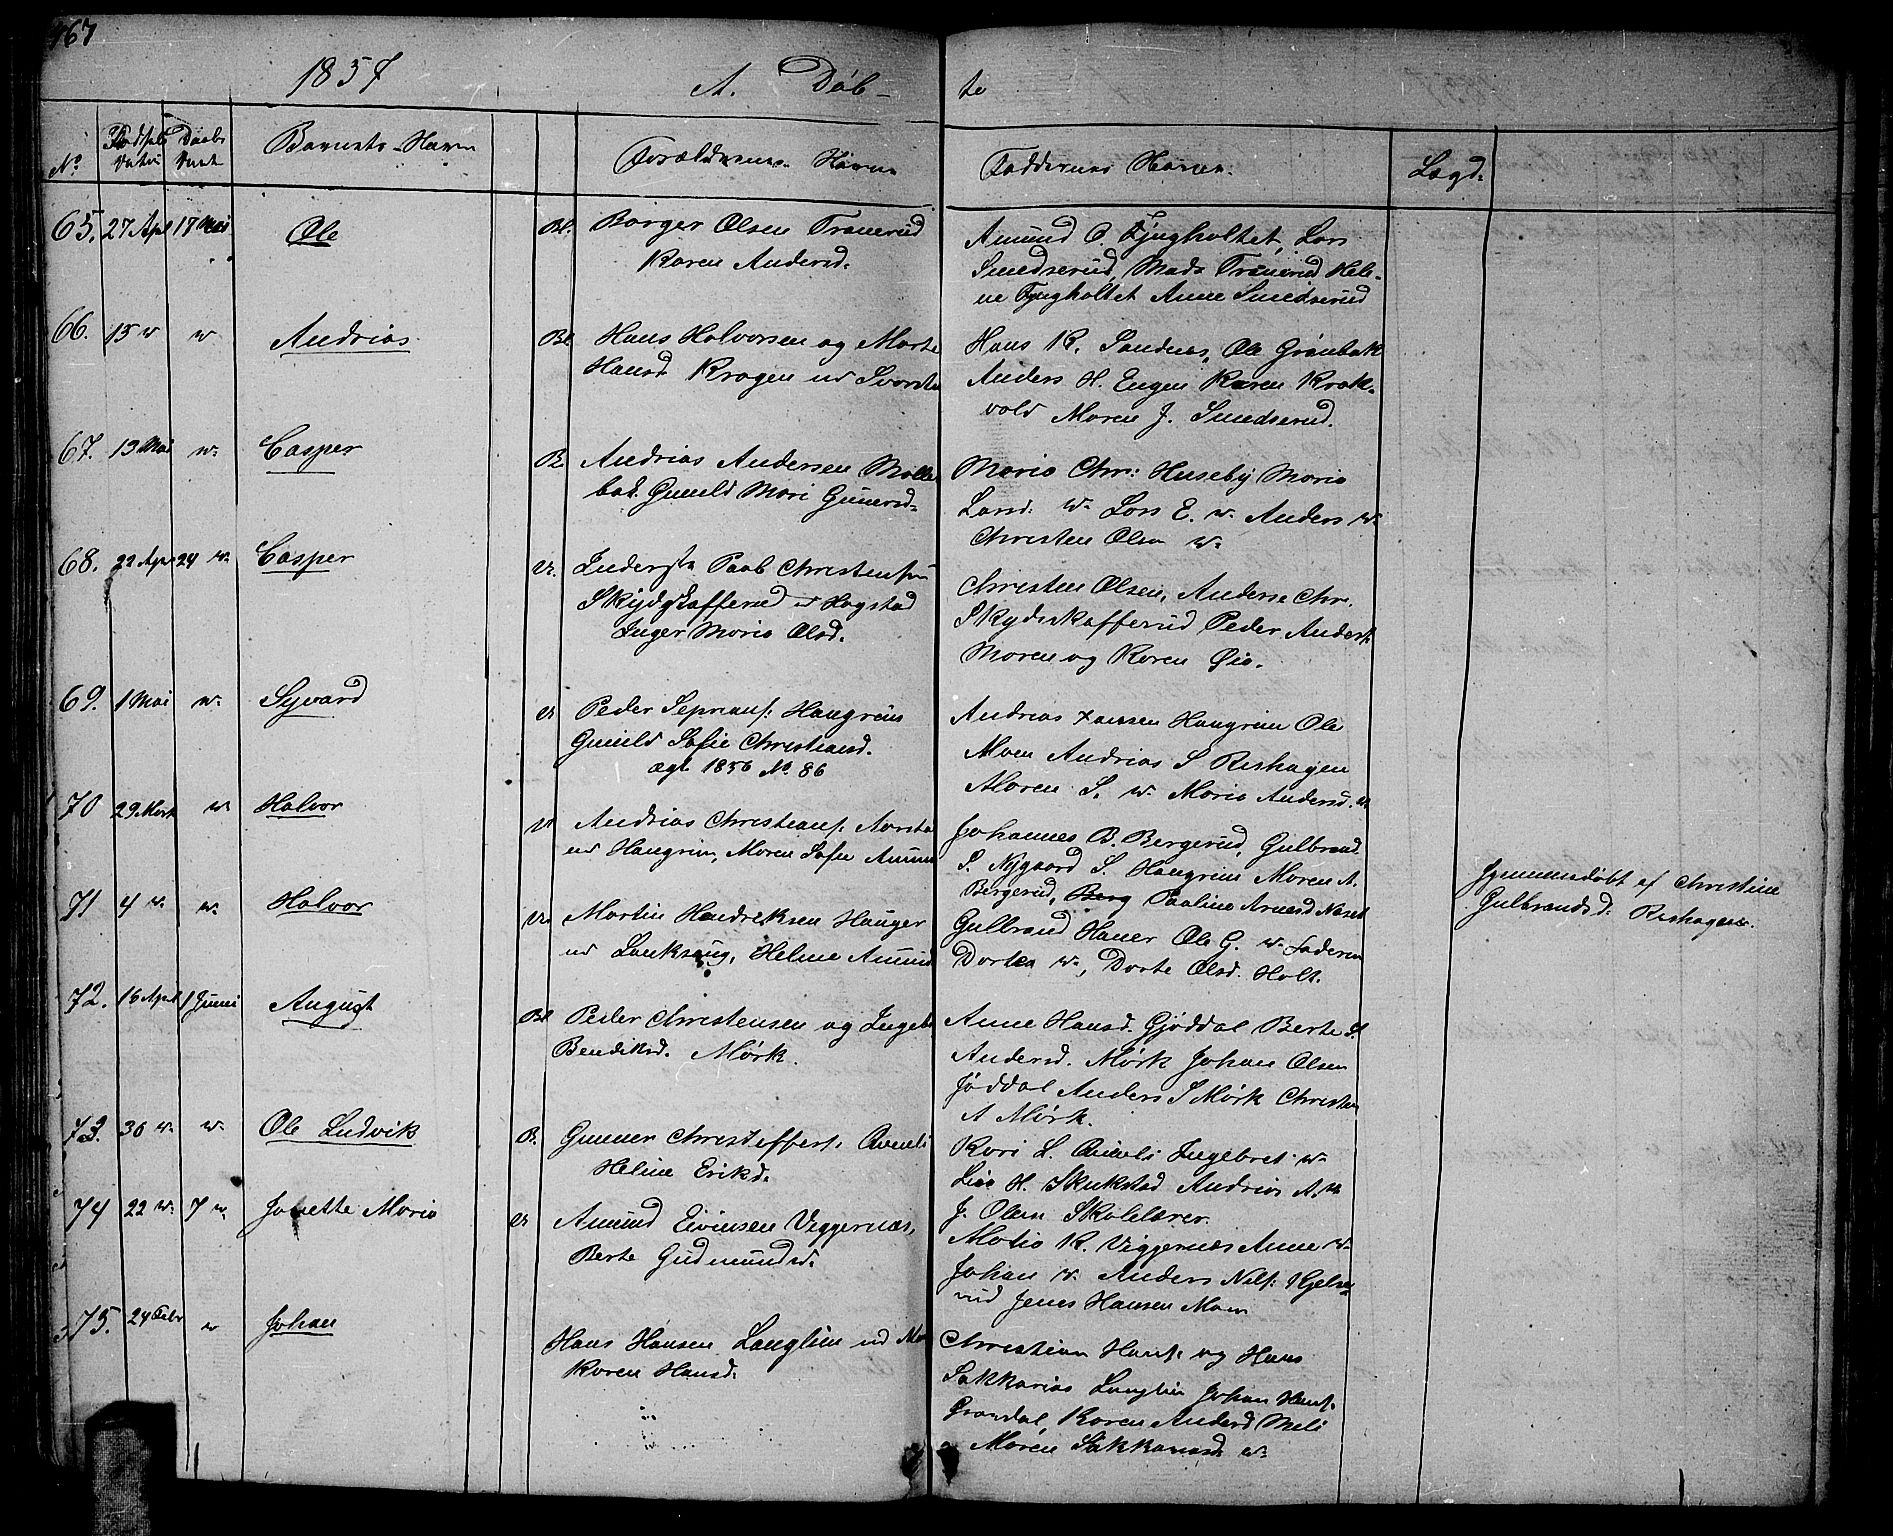 167
1857
A. Døb-
te
No
Fødsels Datum
Daabs Datum
Barnets Navn
Forældrenes Navn
Faddernes Navn.
Lægd.
65. 27 Apl 17 Mai Ole
Borger Olsen Tranerud
Karen Andersd.
Amund O. Fjugholtet, Lars
Smedserud, Mads Tranerud Hele-
ne Fjugholtet Anne Smedserud
66. 15 w w Andrias
Hans Halvorsen og Marte
Hansd. Kragen
Hans K. Sandnæs, Ole Grønbæk
Anders H. Engen Karen Krok-
vold Maren J. Smedserud.
67. 13 Mai w. Casper
Andrias Andersen Mølle
bæk. Gunild Mari Gunersd.
Maria Chr: Huseby Maria
Larsd. w. Lars E. w. Anders w.
Christen Olsen w.
68. 22 Apr 24 w. Casper
Inderst. Paal Christensen
Skydskafferud w Hagstad
Inger Maria Olsd.
Christen Olsen, Anders Chr.
Skydskafferud Peder Anders.
Maren og Karen Øie.
69. 1 Mai w. Syvard
Peder Hangrim
Gunild Sofie Christiansd.
ægt. 1856 No. 86
Andrias Hansen Hangrim Ole
Moen Andrias S Rishagen
Maren S. w. Maria Andersd. w.
70 29 Mart w. Halvor
Andrias Christians.
Hangrim, Maren Sofie
Johannes B. Bergerud, Gulbrand
S. Nygaard S. Hangrim Maren A.
Bergerud, Berg Pauline Arnesd Næset
71 4 w. w. Halvor
Martin Hendriksen Hauger
Helene Amund
Gulbrand Hauer Ole G. w. Faderen
Dortea w., Dorte Olsd. Holt.
Hjemmedøbt af Christine
Gulbrandsd. Rishagen.
72. 16 Aprl 1 Juni August
Peder Christensen og Ingeb.
Bendiksd. Mørk.
Anne Hansd. Gjøddal Berte S.
Andersd. Mørk Johan Olsen
Jøddal Anders S Mørk Christen
A Mørk.
73. 30 w. w. Ole Ludvik
Gunner Christoffers.
Helene Eriksd.
Kari L. Ingebret w.
Lise H. Skukstad Andrias A. w
J. Olsen Skolelærer.
74 22 w. 7 w. Janette Maria
Amund Eivinsen Viggernæs,
Berte Gudmundsd.
Matia K. Viggernæs Anne w.
Johan w. Anders Nils. Hjelse-
rud Jens Hansen Moen
75. 24 Febr w Johan
Hans Hansen Langlien
Karen Hansd.
Christian Hans. og Hans
Sakkarias Langlien Johan Hans.
Grandal Karen Andersd Meli
Maren Sakkariasd. w.